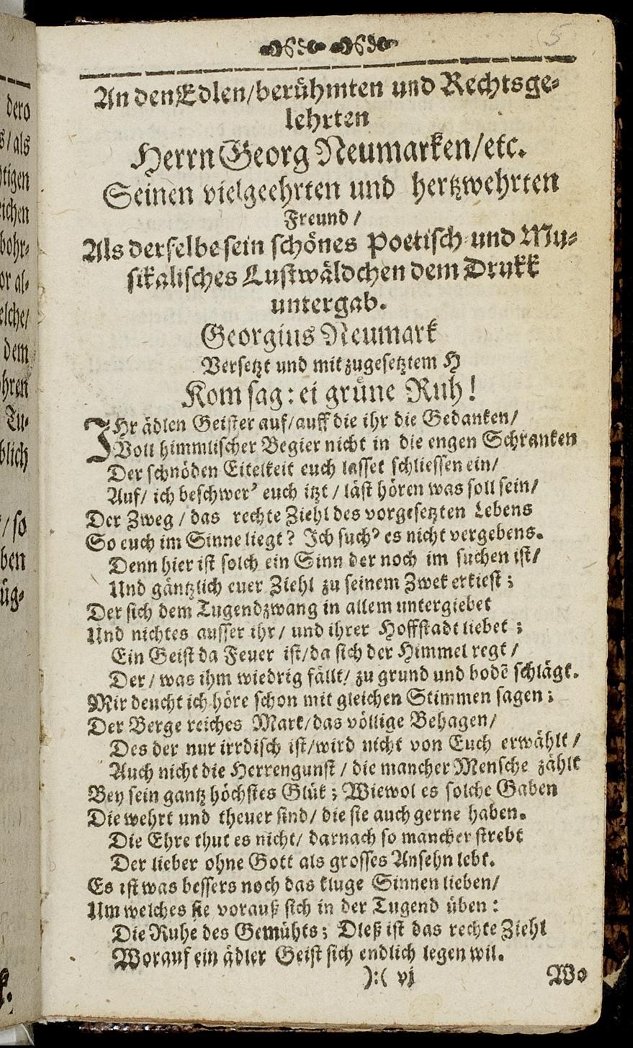 5
An den Edlen/berühmten und Rechtsge-
lehrten
Herrn Georg Neumarken/etc.
Seinen vielgeehrten und hertzwehrten
Freund/
Als derselbe sein schönes Poetisch- und Mu-
sikalisches Lustwäldchen dem Drukk
untergab.
Georgius Neumark
Versetzt und mit zugesetztem H
Kom sag: ei grüne Ruh!
IHr ädlen Geister auf/auff die ihr die Gedanken/
Voll himmlischer Begier nicht in die engen Schranken
Der schnöden Eitelkeit euch lasset schliessen ein/
Auf/ ich beschwer' euch itzt/ läst hören was soll sein/
Der Zweg/ das rechte Ziehl des vorgesetzten Lebens
So euch im Sinne liegt? Ich such' es nicht vergebens.
Denn hier ist solch ein Sinn der noch im suchen ist/
Und gäntzlich euer Ziehl zu seinem Zwek erkiest;
Der sich dem Tugendzwang in allem untergiebet
Und nichtes ausser ihr/ und ihrer Hoffstadt liebet;
Ein Geist da Feuer ist/da sich der Himmel regt/
Der/ was ihm wiedrig fällt/ zu grund und bodē schlägt.
Mir deucht ich höre schon mit gleichen Stimmen sagen:
Der Berge reiches Mark/das völlige Behagen/
Des der nur irrdisch ist/wird nicht von Euch erwählt/
Auch nicht die Herrengunst/ die mancher Mensche zählt
Bey sein gantz höchstes Glük; Wiewol es solche Gaben
Die wehrt und theuer sind/ die sie auch gerne haben.
Die Ehre thut es nicht/ darnach so mancher strebt
Der lieber ohne Gott als grosses Ansehn lebt.
Es ist was bessers noch das kluge Sinnen lieben/
Um welches sie vorauß sich in der Tugend üben:
Die Ruhe des Gemühts; Dieß ist das rechte Ziehl
Worauf ein ädler Geist sich endlich legen wil.
):( vj Wo
dero
s/als
htigen
ichen
bohr-
or al-
elche/
dem
hren
Tu-
blich
/so
ben
üg-